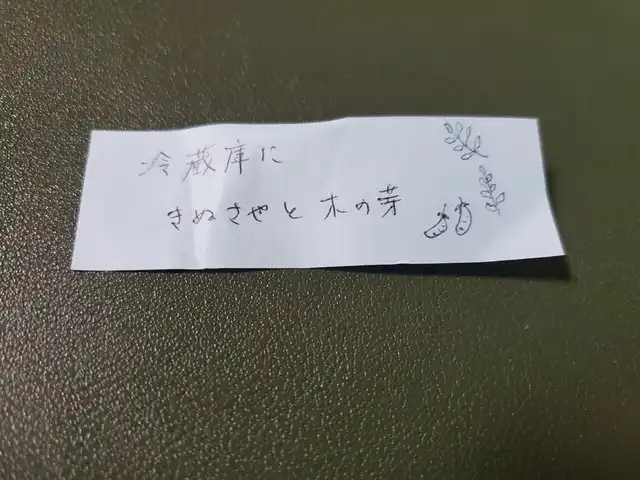 冷蔵庫に
きぬさやと木の芽